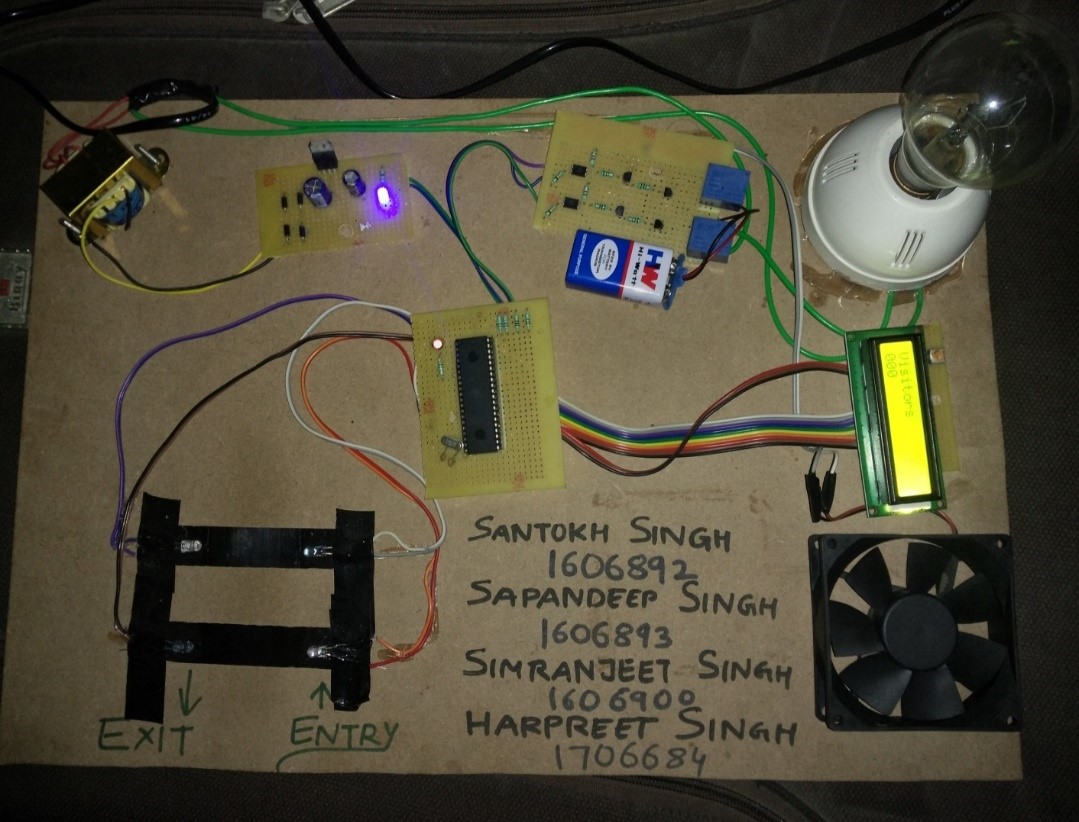 GENERAL PURPOSE
HW
Hi-Watt
Visitors
000
SANTOKH SINGH
1606892
SAPANDEEP SINGH
1606893
SIMRANJEET SINGH
1606900
HARPREET SINGH
1706684
EXIT
ENTRY